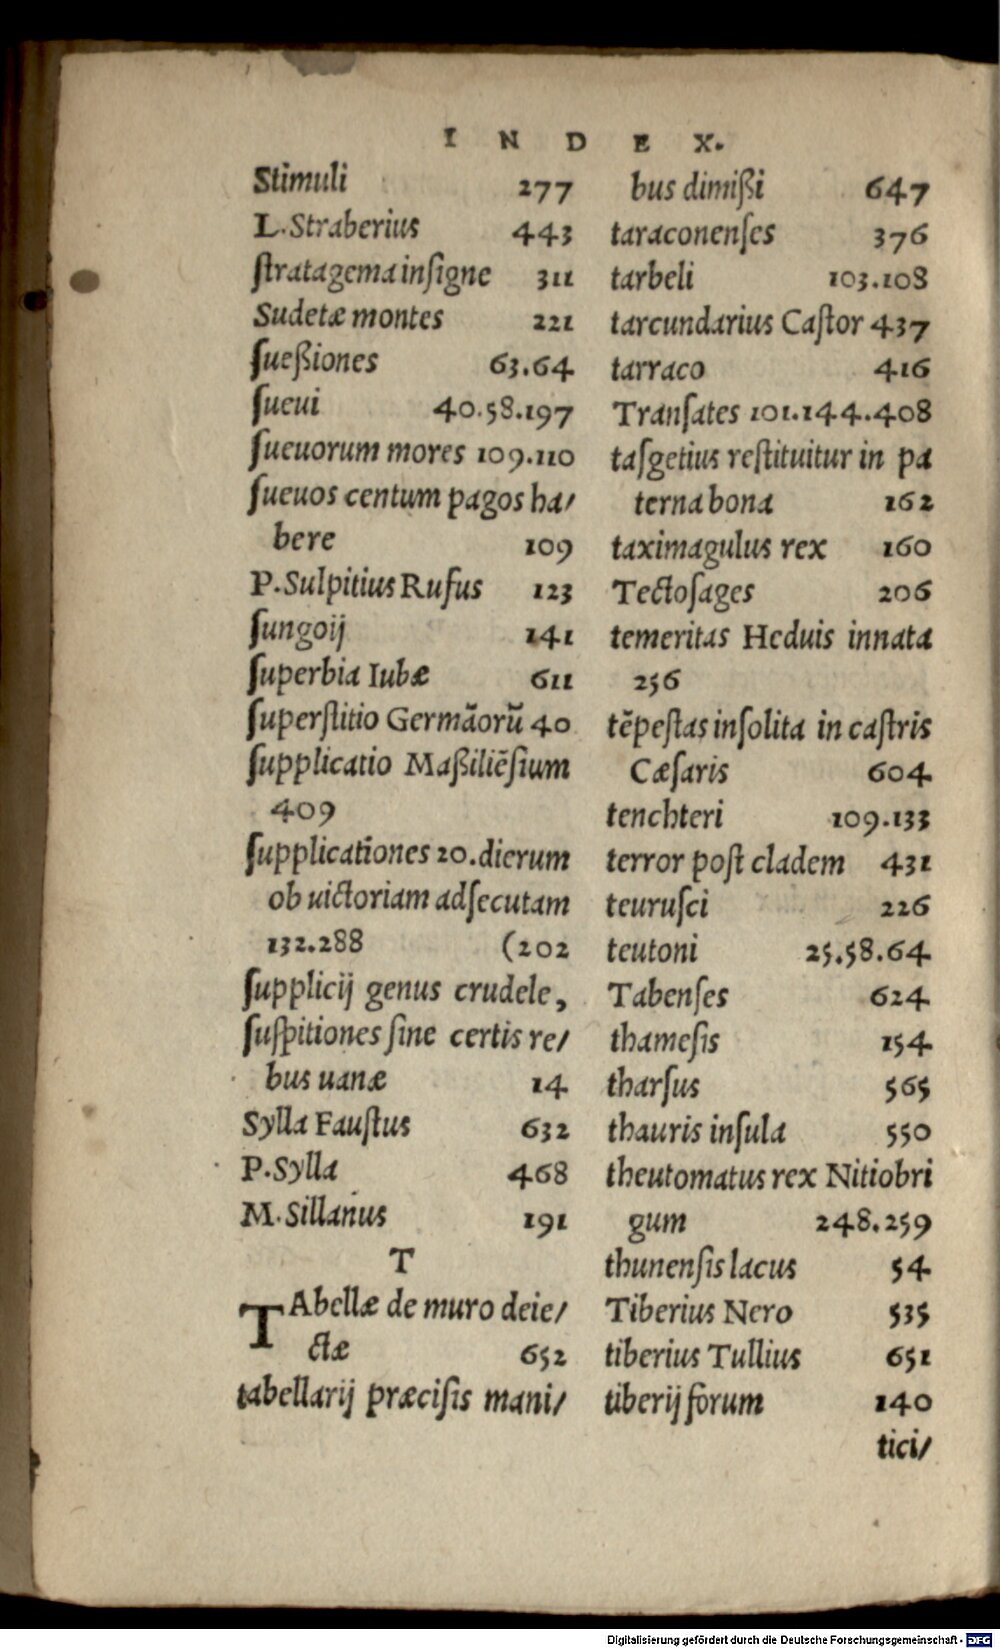 INDEX.
Stimuli 277
L. Straberius 443
ſtratagema inſigne 311
Sudetæ montes 221
ſueßiones 63.64
ſueui 40.58.197
ſueuorum mores 109.110
ſueuos centum pagos ha/
bere 109
P. Sulpitius Rufus 123
ſungoij 141
ſuperbia Iubæ 611
ſuperſtitio Germãorũ 40
ſupplicatio Maßiliẽſium
409
ſupplicationes 20. dierum
ob uictoriam adſecutam
132.288 (202
ſupplicij genus crudele,
ſuſpitiones ſine certis re/
bus uanæ 14
Sylla Fauſtus 632
P. Sylla 468
M. Sillanus 191
T
TAbellæ de muro deie/
ctæ 652
tabellarij præciſis mani/
bus dimißi 647
taraconenſes 376
tarbeli 103.108
tarcundarius Caſtor 437
tarraco 416
Tranſates 101.144.408
taſgetius reſtituitur in pa
terna bona 162
taximagulus rex 160
Tectoſages 206
temeritas Heduis innata
256
tẽpeſtas inſolita in caſtris
Cæſaris 604
tenchteri 109.133
terror poſt cladem 431
teuruſci 226
teutoni 25.58.64
Tabenſes 624
thameſis 154
tharſus 565
thauris inſula 550
theutomatus rex Nitiobri
gum 248.259
thunenſis lacus 54
Tiberius Nero 535
tiberius Tullius 651
tiberij forum 140
tici/
Digitalisierung gefördert durch die Deutsche Forschungsgemeinschaft - DFG